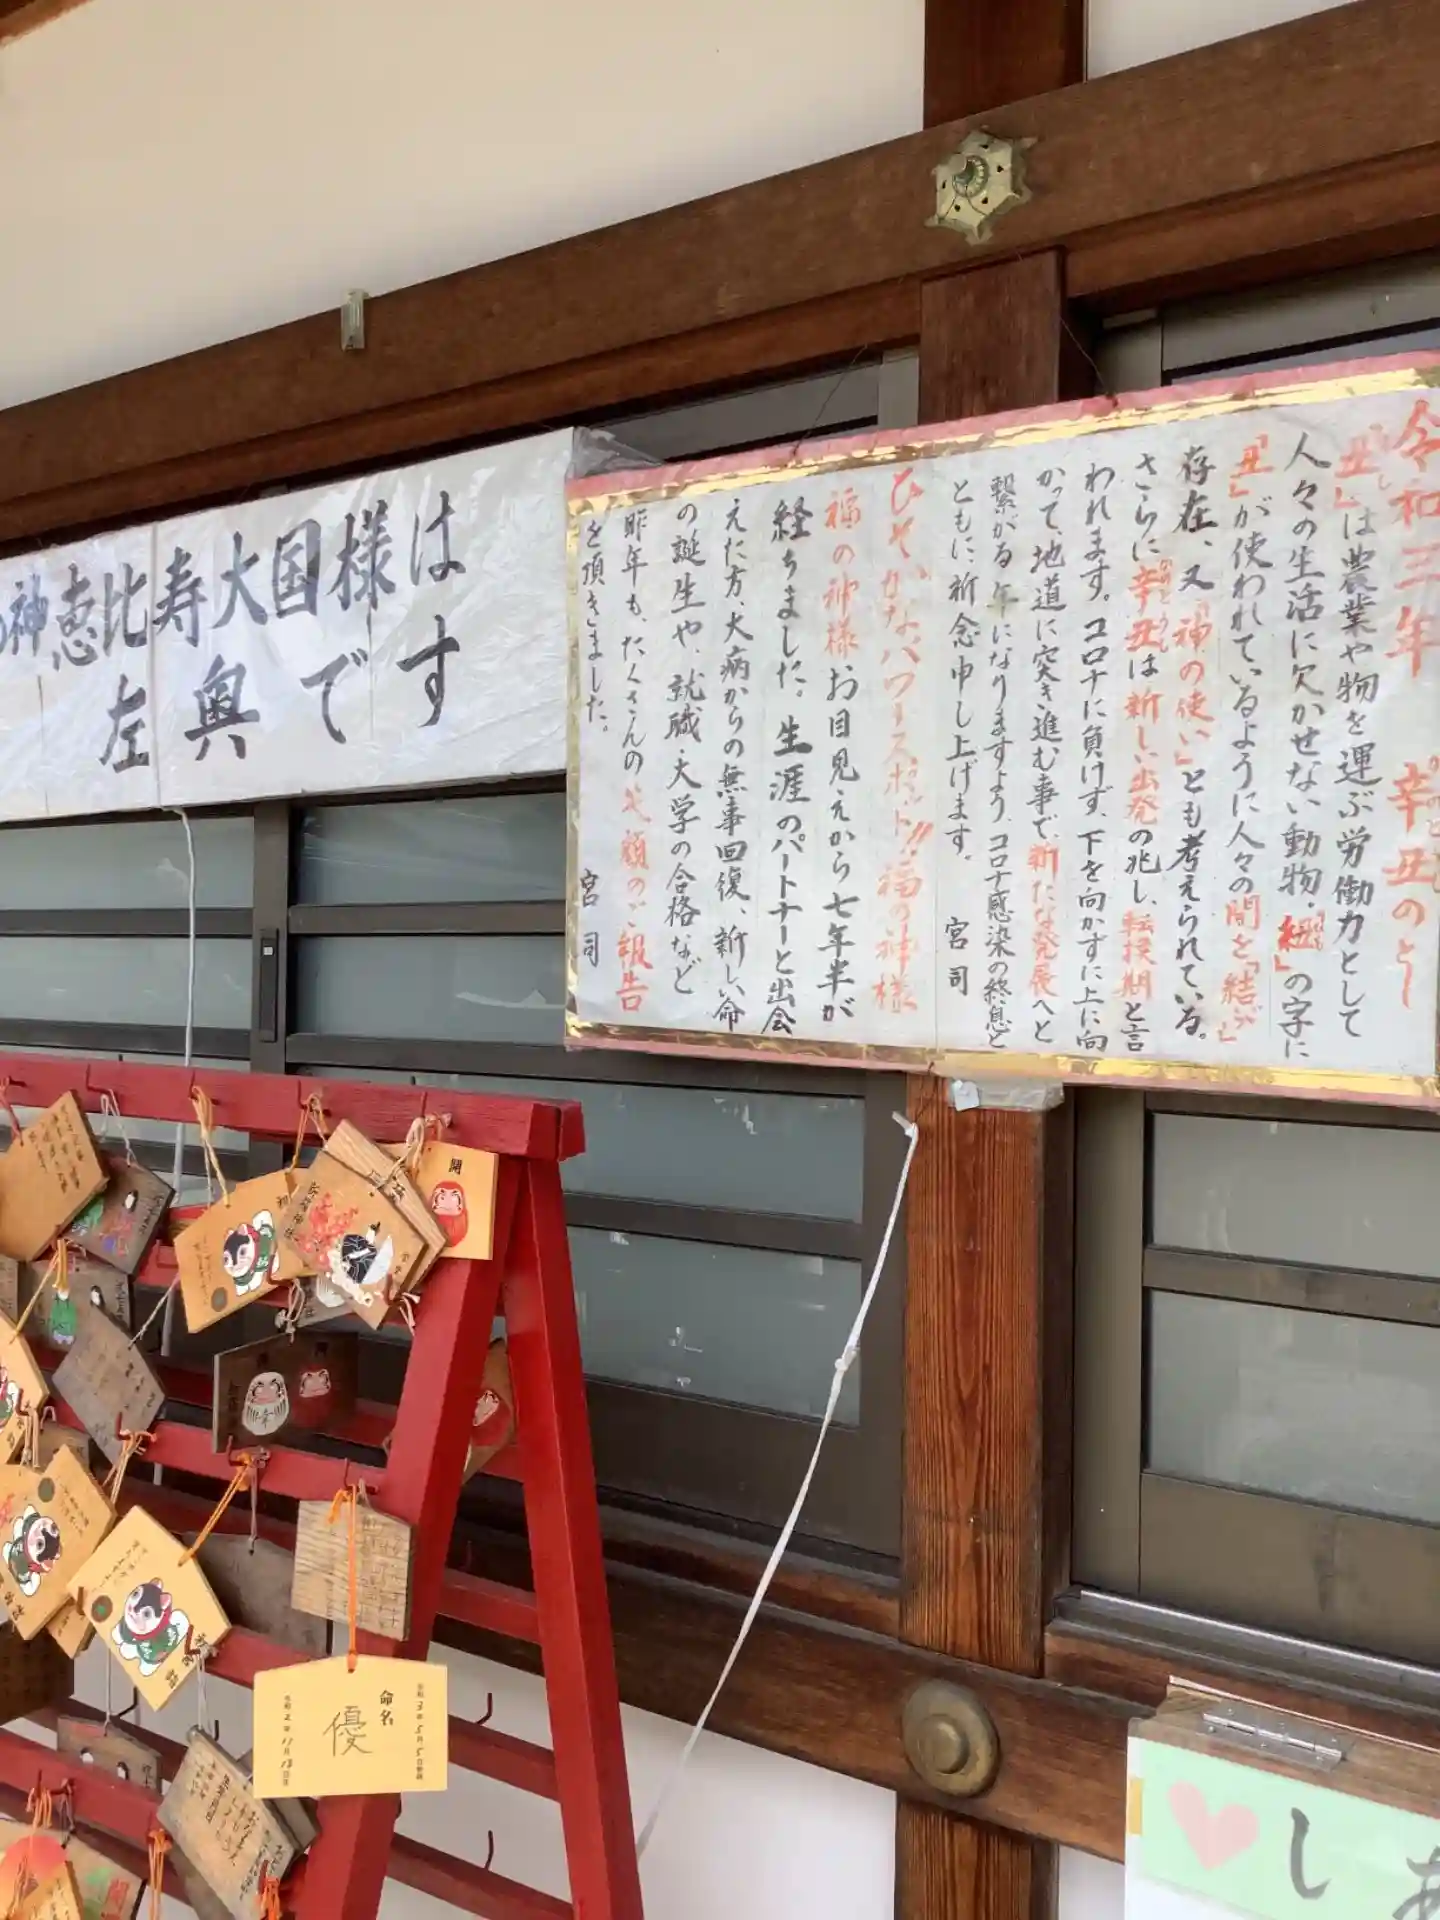 令和三年 辛丑のとし
丑」は農業や物を運ぶ労働力として
人々の生活に欠かせない動物。
紐」の字に
丑」が使われているように人々の間を「結ぶ」
存在、又「神の使い」とも考えられている。
さらに辛丑は新しい出発の兆し、転換期と言
われます。コロナに負けず、下を向かずに上に向
かって、地道に突き進む事で、新たな発展へと
繋がる年になりますよう、コロナ感染の終息と
ともに、祈念申し上げます。 宮司
ひそかなパワースポット!!福の神様
福の神様 お目見えから七年半が
経ちました。生涯のパートナーと出会
えた方、大病からの無事回復、新しい命
の誕生や、就職・大学の合格など
昨年も、たくさんの笑顔のご報告
を頂きました。 宮司
の神恵比寿大国様は
左奥です
開
命名
優
し